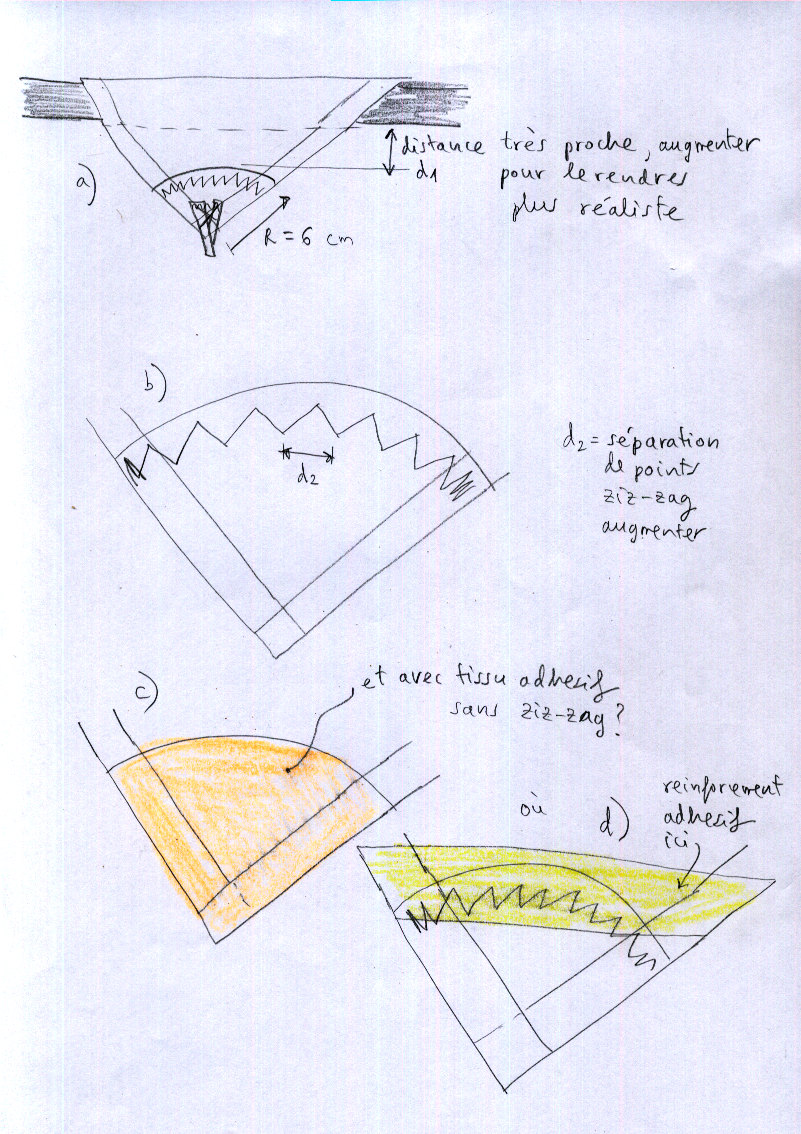 a)
distance très proche, augmenter
d1 pour le rendres
plus réaliste
R = 6 cm
b)
d2
d2 = séparation
de points
ziz-zag
augmenter
c)
et avec tissu adhesif
sans ziz-zag?
où
d)
reinforcement
adhesif
ici